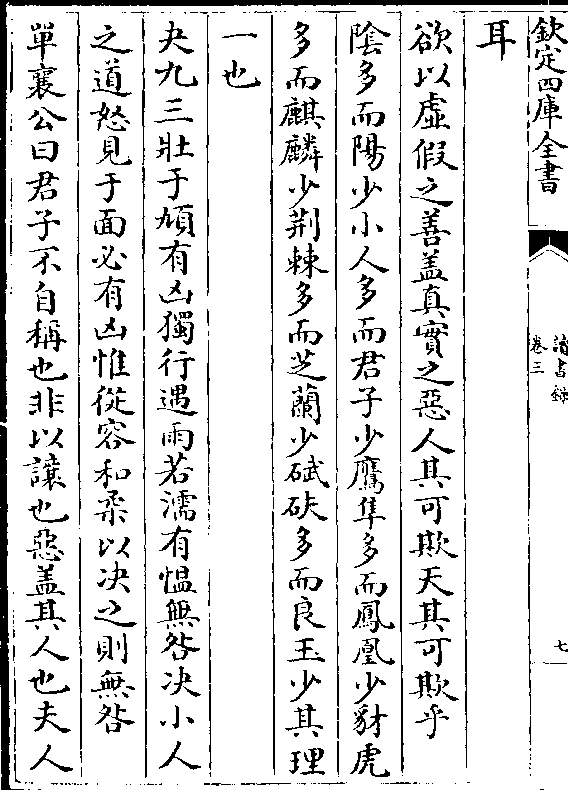 欽定四庫全書
讀書録
卷三
七
耳
欲以虛假之善盖真實之惡人其可欺天其可欺乎
隂多而陽少小人多而君子少鷹隼多而鳳凰少豺虎
多而麒麟少荆棘多而芝蘭少碔砆多而良玉少其理
一也
夬九三壯于頄有凶獨行遇雨若濡有愠無咎决小人
之道怒見于面必有凶惟從容和柔以决之則無咎
單襄公曰君子不自稱也非以讓也惡盖其人也夫人